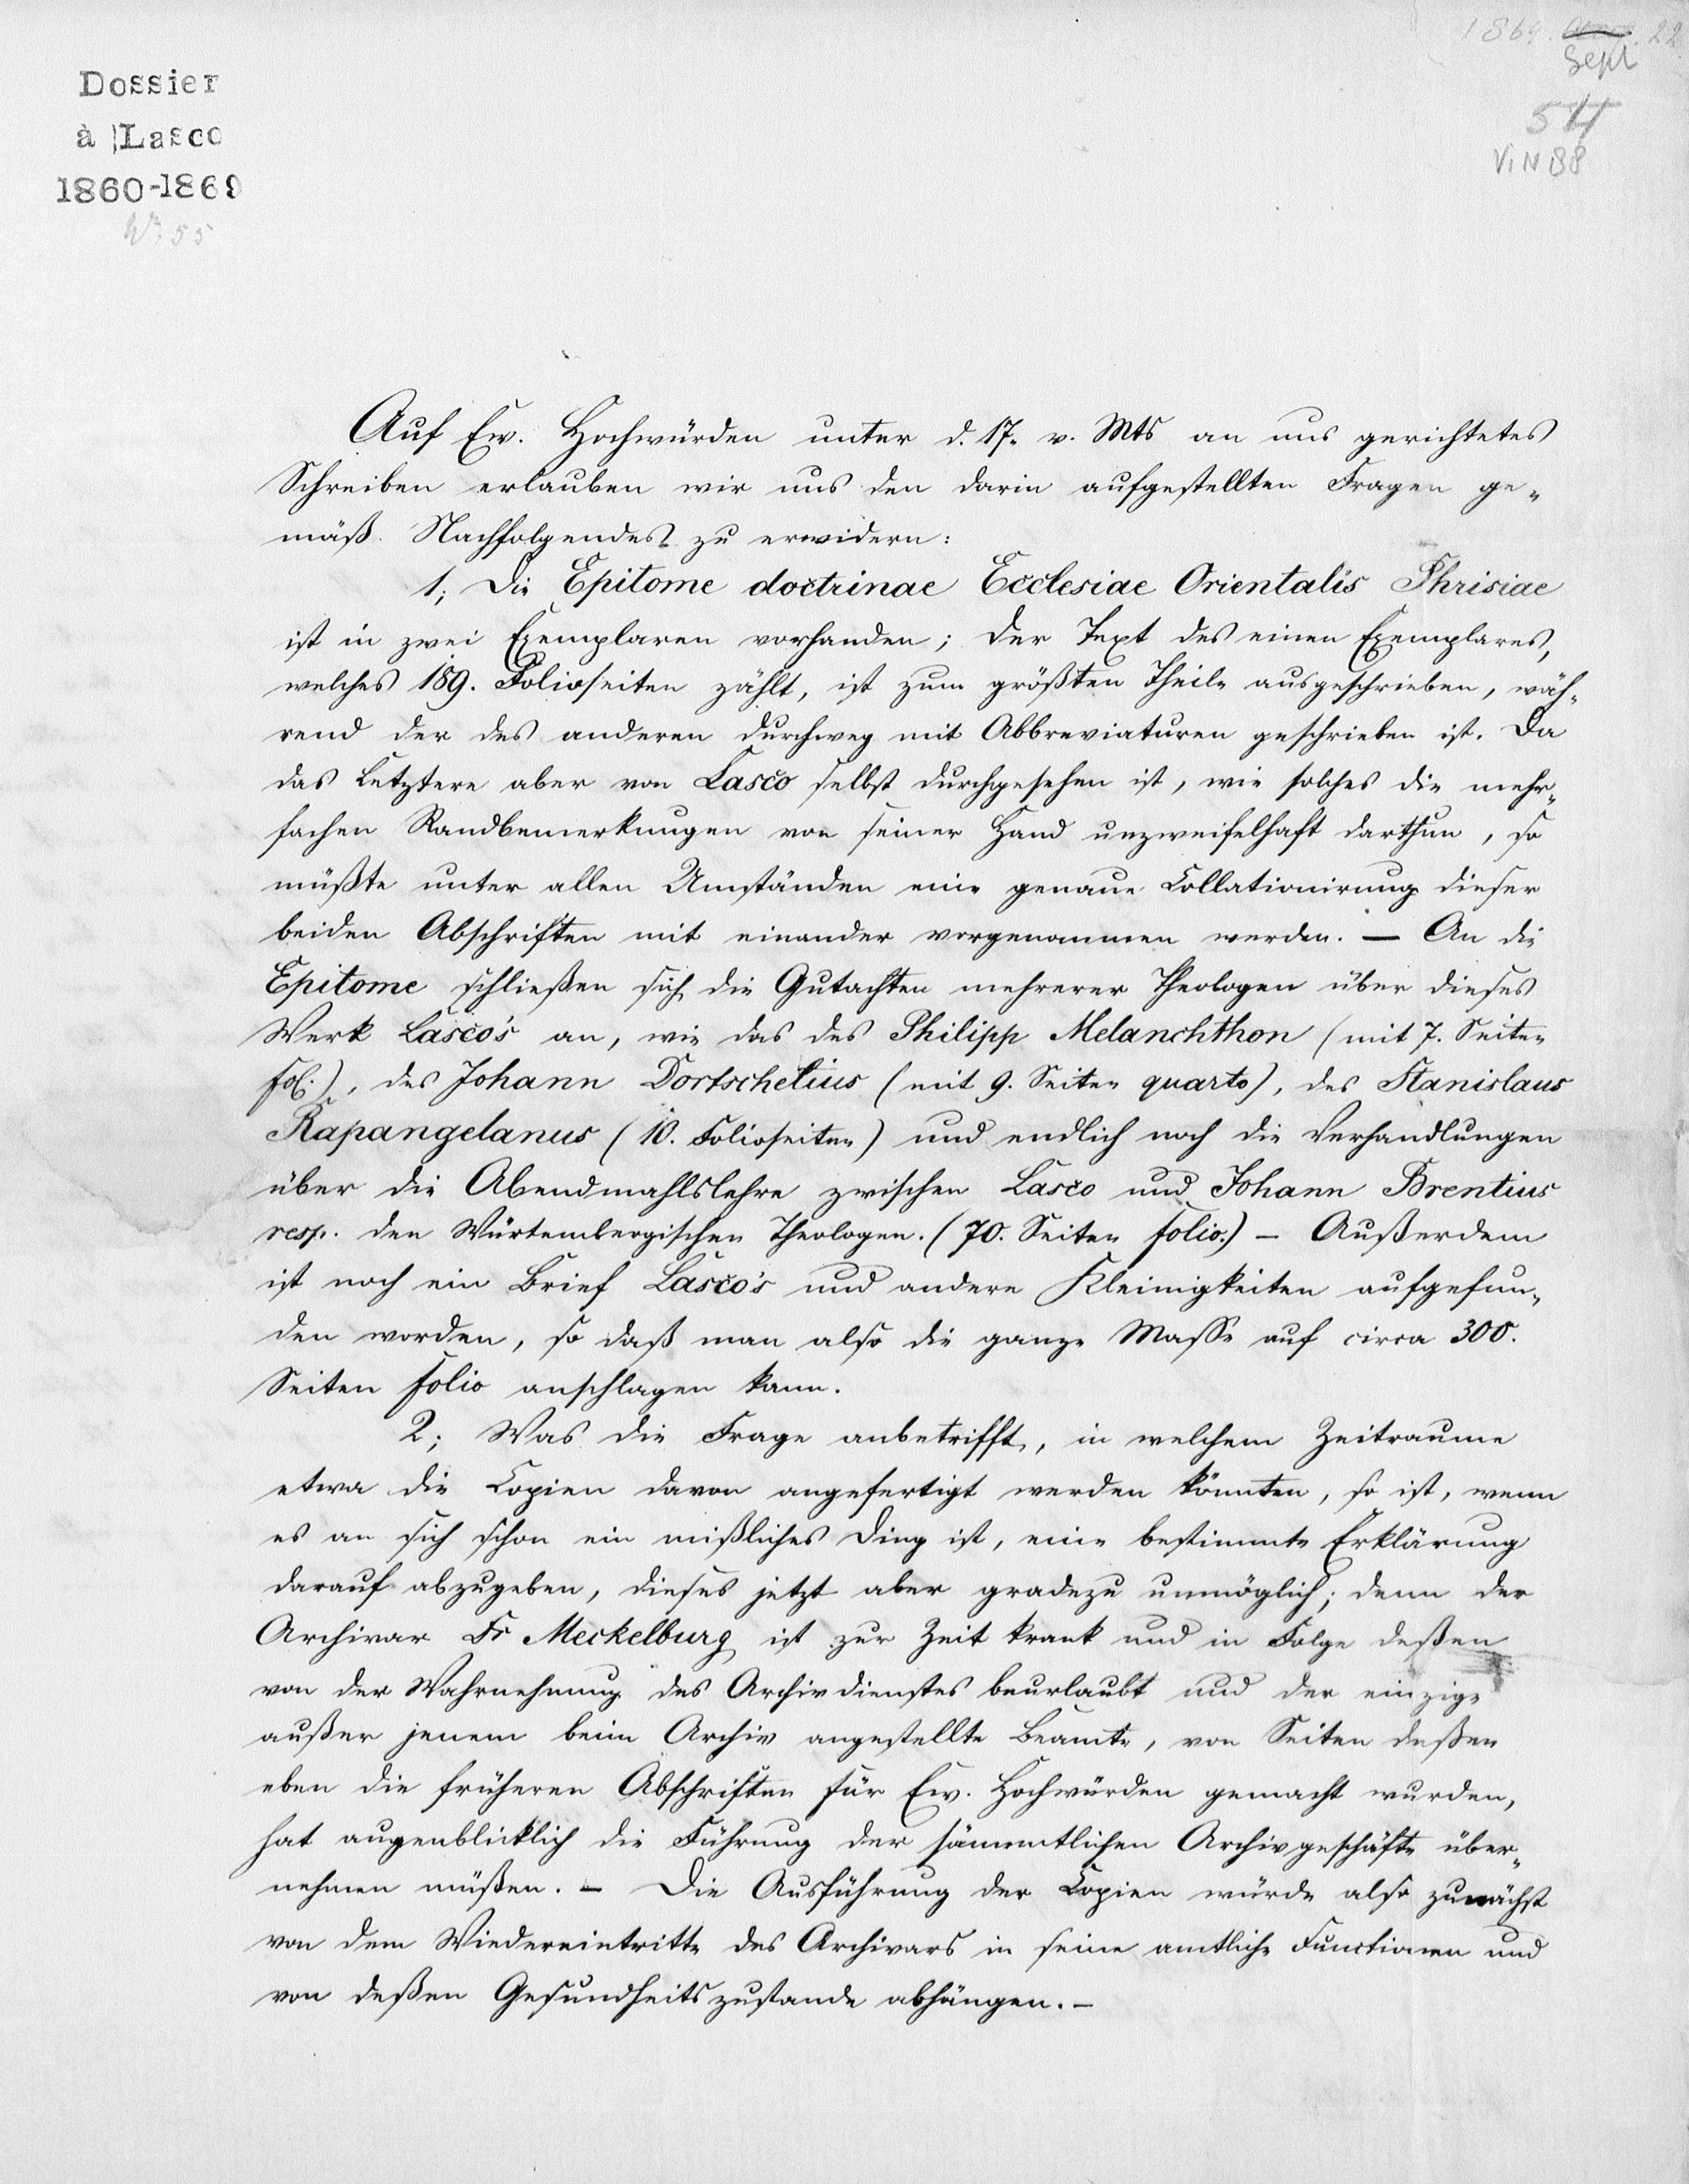 1864. 22
Sept
Dossier
à Lasco
1860-1869
54
VIN B8
Nr 55
Auf Ew. Hochwürden unter d. 17. v. Mts an uns gerichtetes
Schreiben erlauben wir uns den darin aufgestellten Fragen ge-
mäß Nachfolgendes zu erwidern:
1; Die Epitome doctrinae Ecclesiae Orientalis Phrisiae
ist in zwei Exemplaren vorhanden; der Text des einen Exemplares,
welches 189. Folioseiten zählt, ist zum größten Theile ausgeschrieben, wäh-
rend der des anderen durchweg mit Abbreviaturen geschrieben ist. Da
das Letztere aber von Lasco selbst durchgesehen ist, wie solches die mehr-
fachen Randbemerkungen von seiner Hand unzweifelhaft darthun, so
müßte unter allen Umständen eine genaue Collationirung dieser
beiden Abschriften mit einander vorgenommen werden. — An die
Epitome schließen sich die Gutachten mehrerer Theologen über dieses
Werk Lasco's an, wie das des Philipp Melanchthon (mit 7. Seiten
fol.), des Johann Dortschelius (mit 9. Seiten quarto), des Stanislaus
Rapangelanus (10. Folioseiten) und endlich noch die Verhandlungen
über die Abendmahlslehre zwischen Lasco und Johann Brentius
resp. den Würtembergischen Theologen. (70. Seiten folio.) — Außerdem
ist noch ein Brief Lasco's und andere Kleinigkeiten aufgefun-
den worden, so daß man also die ganze Masse auf circa 300.
Seiten folio anschlagen kann.
2; Was die Frage anbetrifft, in welchem Zeitraume
etwa die Copien davon angefertigt werden könnten, so ist, wenn
es an sich schon ein mißliches Ding ist, eine bestimmte Erklärung
darauf abzugeben, dieses jetzt aber gradezu unmöglich; denn der
Archivar Dr Meckelburg ist zur Zeit krank und in Folge deßen
von der Wahrnehmung des Archivdienstes beurlaubt und der einzige
außer jenem beim Archiv angestellte Beamte, von Seiten deßen
eben die früheren Abschriften für Ew. Hochwürden gemacht wurden,
hat augenblicklich die Führung der sämmtlichen Archivgeschäfte über-
nehmen müßen. — Die Ausführung der Copien würde also zunächst
von dem Wiedereintritte des Archivars in seine amtliche Functionen und
von deßen Gesundheitszustande abhängen. —